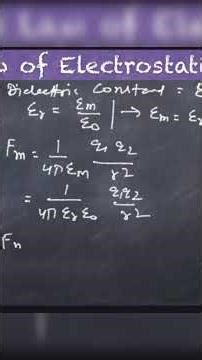 of Electrostati
Dielectric Constant =
εr = εm/ε0 | → εm = εr
Fm = 1/4πεm q1 q2/r2
= 1/4πεrε0 q1q2/r2
F